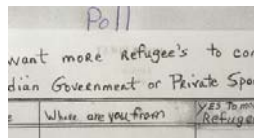 Poll
want more Refugee's to co
dian Government or Private Spo
s Where are you from YES To mo
Refuge